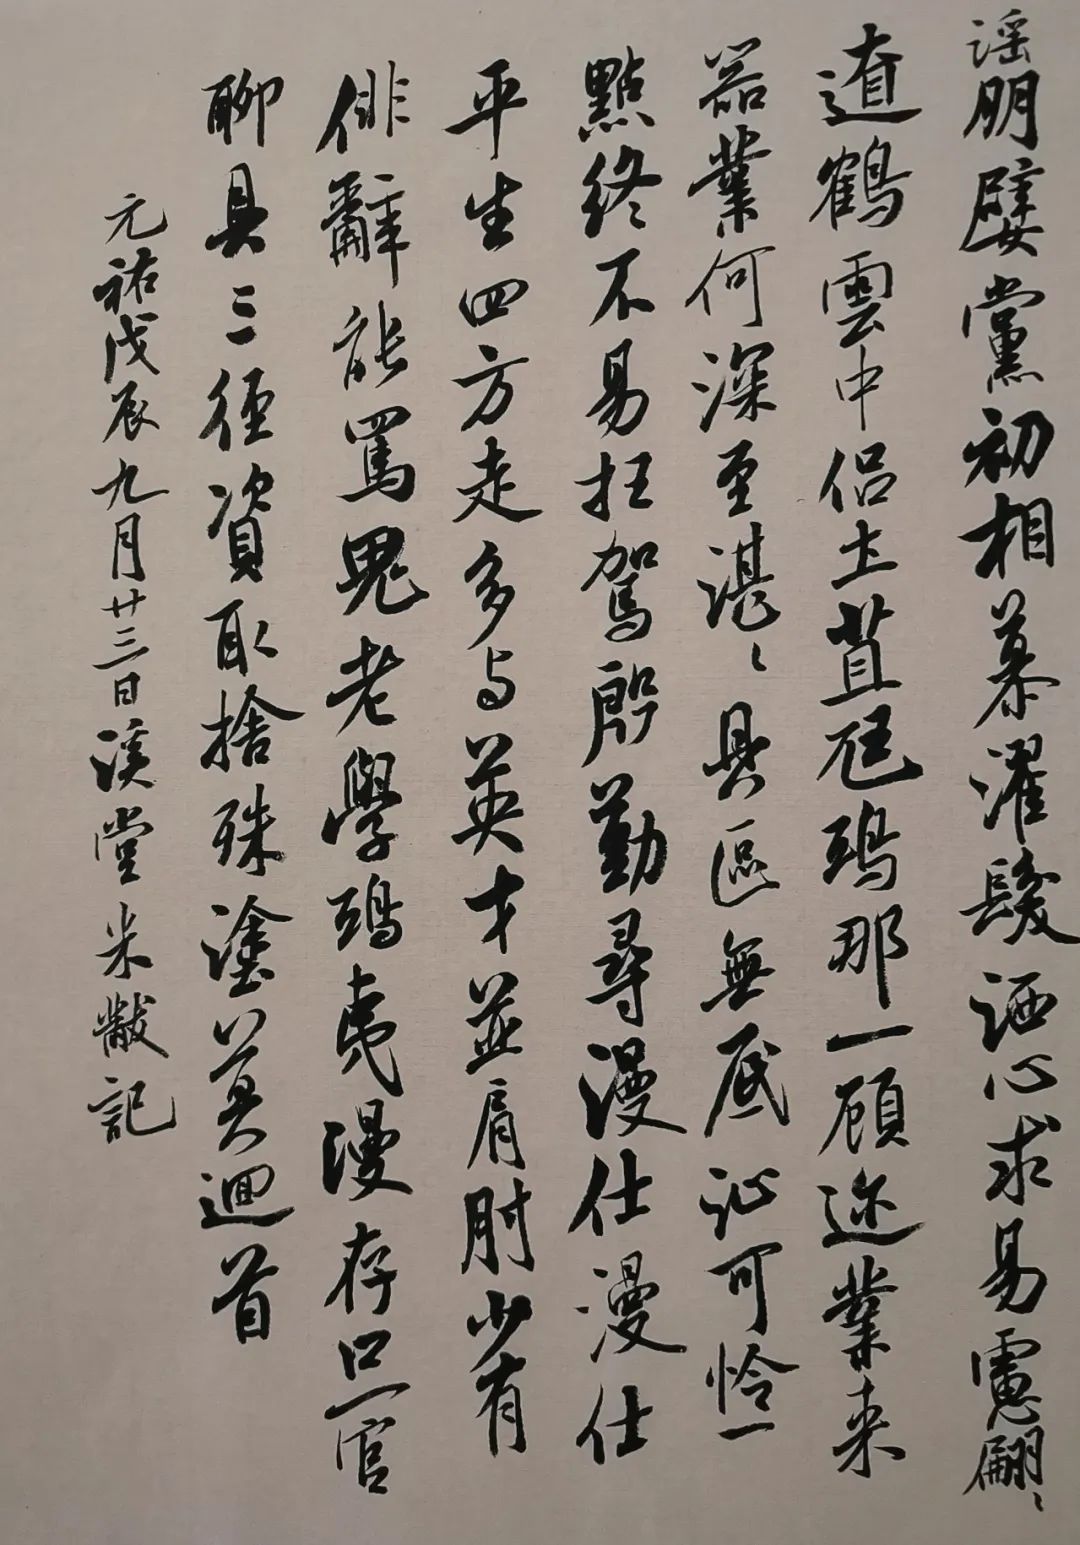 谣朋嬖黨初相慕濯髮洒心求易慮翩〻
遼鶴雲中侣土苴尫鴟那一顧迩業来
器業何深至湛〻具區無底沚可怜一
點終不易枉駕殷勤尋漫仕漫仕
平生四方走多与英才並肩肘少有
俳辭能罵鬼老學鴟夷漫存口一官
聊具三徑資取捨殊塗莫迴首
元祐戊辰九月廿三日溪堂米黻記